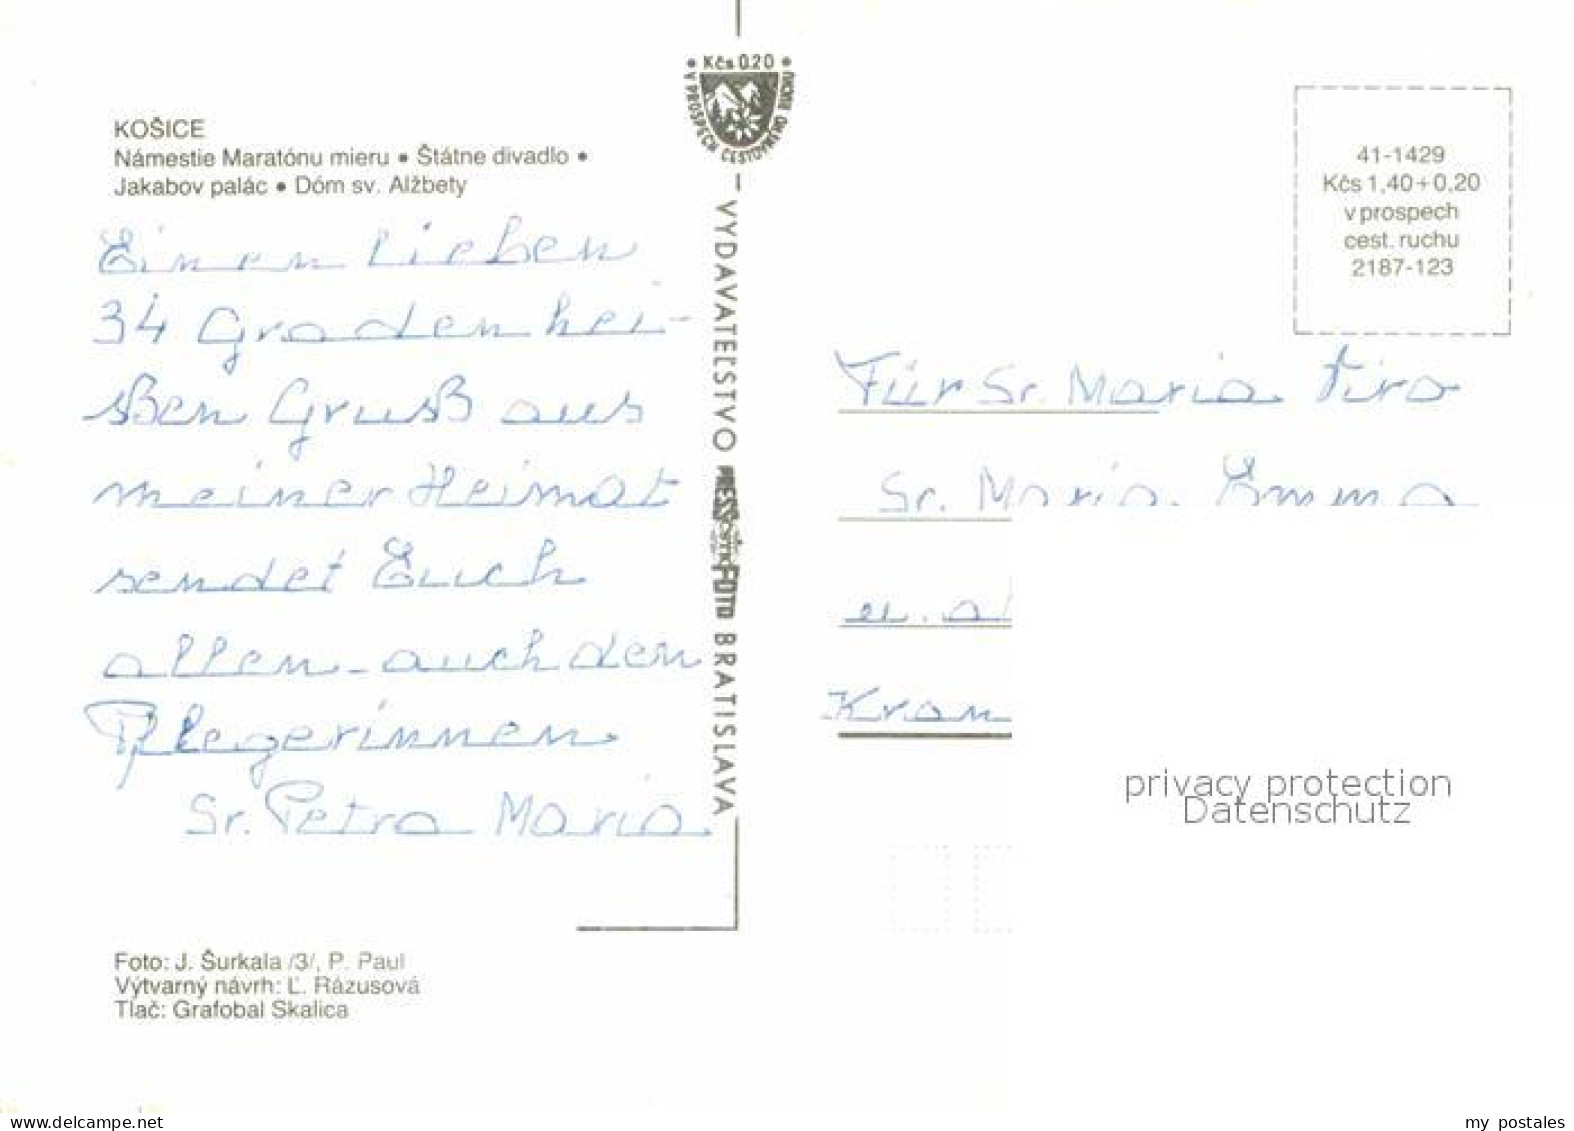 Kčs 0.20
V PROSPECH CESTOVNÉHO RUCHU
KOŠICE
Námestie Maratónu mieru • Štátne divadlo •
Jakabov palác • Dóm sv. Alžbety
Einen lieben
34 Graden hei-
ßen Gruß aus
meiner Heimat
sendet Euch
allen - auch den
Pflegerinnen
Sr. Petra Maria
Foto: J. Šurkala /3/, P. Paul
Výtvarný návrh: Ľ. Rázusová
Tlač: Grafobal Skalica
VYDAVATEĽSTVO PRESSFOTO BRATISLAVA
41-1429
Kčs 1,40+0,20
v prospech
cest. ruchu
2187-123
Für Sr. Maria Tira
Sr. Maria Emma
u. al
Kran
privacy protection
Datenschutz
my postales